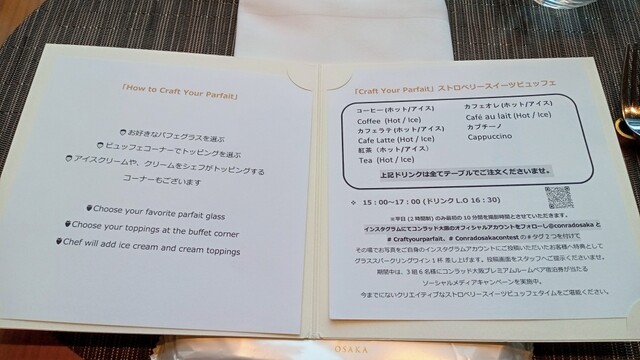 「How to Craft Your Parfait」
お好きなパフェグラスを選ぶ
ビュッフェコーナーでトッピングを選ぶ
アイスクリームや、クリームをシェフがトッピングする
コーナーもございます
Choose your favorite parfait glass
Choose your toppings at the buffet corner
Chef will add ice cream and cream toppings
「Craft Your Parfait」ストロベリースイーツビュッフェ
コーヒー(ホット/アイス)
Coffee (Hot / Ice)
カフェラテ(ホット/アイス)
Cafe Latte (Hot / Ice)
紅茶（ホット/アイス）
Tea (Hot / Ice)
カフェオレ(ホット/アイス)
Café au lait (Hot / Ice)
カプチーノ
Cappuccino
上記ドリンクは全てテーブルでご注文くださいませ。
✧ 15：00~17：00 (ドリンク L.O 16：30)
※平日 (2 時間制) のみ最初の 10 分間を撮影時間とさせていただきます。
インスタグラムにてコンラッド大阪のオフィシャルアカウントをフォローし@conradosaka と
# Craftyourparfait、# Conradosakacontest の＃タグ 2 つを付けて
その場でお写真をご自身のインスタグラムアカウントにご投稿いただいたお客様へ特典として
グラススパークリングワイン 1 杯 差し上げます。投稿画面をスタッフへご提示くださいませ。
期間中は、3 組 6 名様にコンラッド大阪プレミアムルームペア宿泊券が当たる
ソーシャルメディアキャンペーンを実施中。
今までにないクリエイティブなストロベリースイーツビュッフェタイムをご堪能ください。
OSAKA